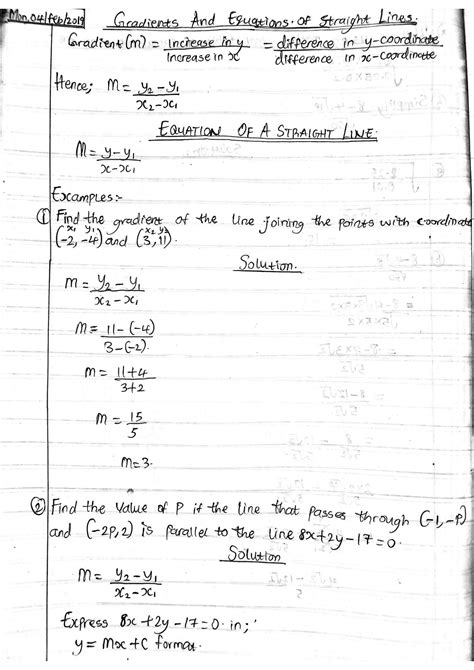 Mon.04/feb/2019 Gradients And Equations of Straight Lines.
Gradient (m) = Increase in y / Increase in x = difference in y-coordinate / difference in x-coordinate
Hence; M = y₂ - y₁ / x₂ - x₁
EQUATION OF A STRAIGHT LINE.
M = y - y₁ / x - x₁
Examples:-
① Find the gradient of the line joining the points with coordinate
x₁ y₁ x₂ y₂
(-2, -4) and (3, 11).
Solution.
m = y₂ - y₁ / x₂ - x₁
m = 11 - (-4) / 3 - (-2).
m = 11 + 4 / 3 + 2
m = 15 / 5
m = 3.
② Find the value of P if the line that passes through (-1, -P)
and (-2P, 2) is parallel to the line 8x + 2y - 17 = 0.
Solution
m = y₂ - y₁ / x₂ - x₁
Express 8x + 2y - 17 = 0. in;
y = Mx + C format.